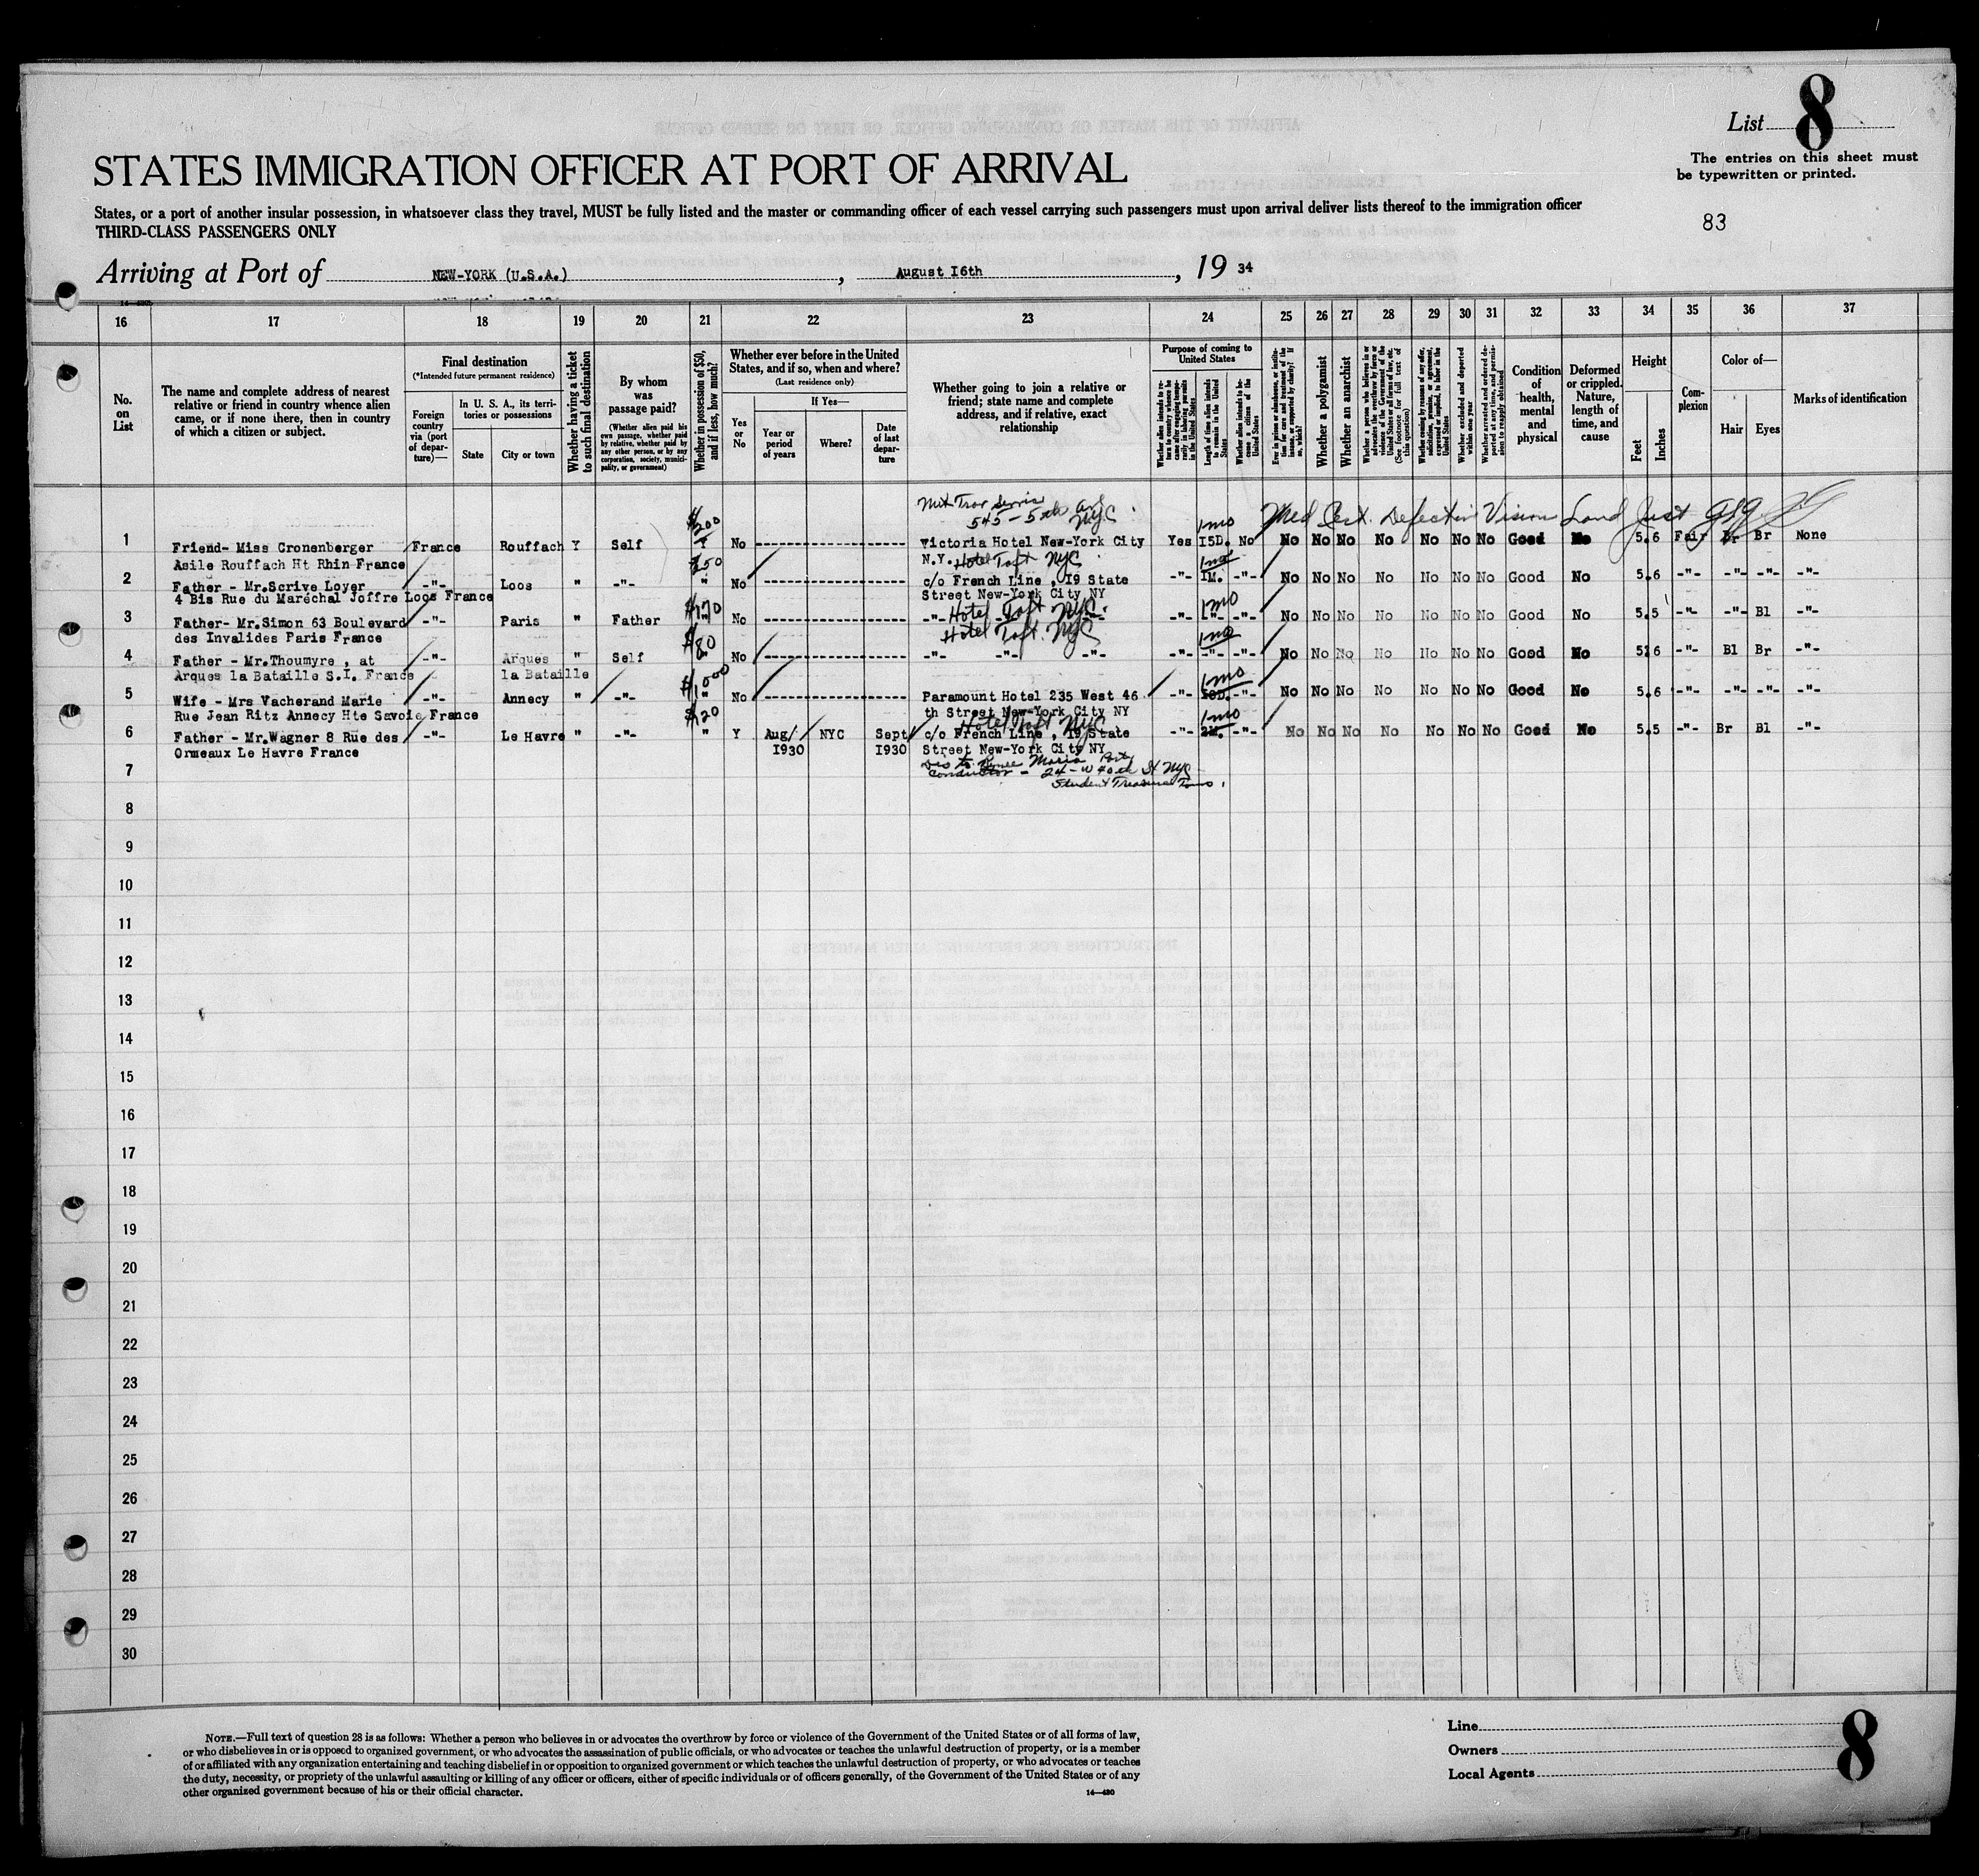 List 8
The entries on this sheet must
be typewritten or printed.
STATES IMMIGRATION OFFICER AT PORT OF ARRIVAL
States, or a port of another insular possession, in whatsoever class they travel, MUST be fully listed and the master or commanding officer of each vessel carrying such passengers must upon arrival deliver lists thereof to the immigration officer
THIRD-CLASS PASSENGERS ONLY
83
Arriving at Port of NEW-YORK (U.S.A.) , August I6th , 19 34
16 17 18 19 20 21 22 23 24 25 26 27 28 29 30 31 32 33 34 35 36 37
No. on List
The name and complete address of nearest
relative or friend in country whence alien
came, or if none there, then in country
of which a citizen or subject.
Final destination
(*Intended future permanent residence)
Foreign country via (port of departure)—
In U. S. A., its territories or possessions
State
City or town
Whether having a ticket to such final destination
By whom was passage paid?
(Whether alien paid his own passage, whether paid by relative, whether paid by any other person, or by any corporation, society, municipality, or government)
Whether in possession of $50, and if less, how much?
Whether ever before in the United States, and if so, when and where?
(Last residence only)
Yes or No
If Yes—
Year or period of years
Where?
Date of last departure
Whether going to join a relative or
friend; state name and complete
address, and if relative, exact
relationship
Purpose of coming to United States
Length of time alien intends to remain in the United States
Whether alien intends to become a citizen of the United States
Whether a polygamist
Whether an anarchist
Condition of health, mental and physical
Deformed or crippled. Nature, length of time, and cause
Height
Feet
Inches
Complexion
Color of—
Hair
Eyes
Marks of identification
545 - 5th Ave
NYC
Med Cert. Defective Vision
1 Friend- Miss Cronenberger France Rouffach Y Self $200 No Victoria Hotel New-York City Yes 1 mo I5D. No No No No No No No No Good No 5.6 Fair Br Br None
Asile Rouffach Ht Rhin France N.Y. Hotel Taft NYC
2 Father - Mr.Scrive Loyer -"- Loos " -"- $50 " No c/o French Line , I9 State -"- IM. -"- No No No No No No No Good No 5.6 -"- -"- -"- -"-
4 Bis Rue du Maréchal Joffre Loos France Street New-York City NY
3 Father- Mr.Simon 63 Boulevard -"- Paris " Father $170 No -"- Hotel Taft NYC -"- 1 mo -"- No No No No No No No Good No 5.5 -"- -"- Bl -"-
des Invalides Paris France Hotel Taft. NYC
4 Father - Mr.Thoumyre , at -"- Arques " Self $80 No -"- -"- -"- -"- 1 mo -"- -"- No No No No No No No Good No 5.6 -"- Bl Br -"-
Arques la Bataille S.I. France la Bataille
5 Wife - Mrs Vacherand Marie -"- Annecy " -"- $1000 " No Paramount Hotel 235 West 46 -"- 1 mo -"- No No No No No No No Good No 5.6 -"- -"- -"- -"-
Rue Jean Ritz Annecy Hte Savoie France th Street New-York City NY
Hotel Taft NYC
6 Father - Mr.Wagner 8 Rue des -"- Le Havre " -"- $20 " Y Aug/ NYC Sept c/o French Line , I9 State -"- 1 mo 2M. -"- No No No No No No No Good No 5.5 -"- Br Bl -"-
Ormeaux Le Havre France I930 I930 Street New-York City NY
Conductor - 24 - W 40th St NYC
7
8
9
10
11
12
13
14
15
16
17
18
19
20
21
22
23
24
25
26
27
28
29
30
NOTE.—Full text of question 28 is as follows: Whether a person who believes in or advocates the overthrow by force or violence of the Government of the United States or of all forms of law,
or who disbelieves in or is opposed to organized government, or who advocates the assassination of public officials, or who advocates or teaches the unlawful destruction of property, or is a member
of or affiliated with any organization entertaining and teaching disbelief in or opposition to organized government or which teaches the unlawful destruction of property, or who advocates or teaches
the duty, necessity, or propriety of the unlawful assaulting or killing of any officer or officers, either of specific individuals or of officers generally, of the Government of the United States or of any
other organized government because of his or their official character.
14—480
Line
Owners
Local Agents
8